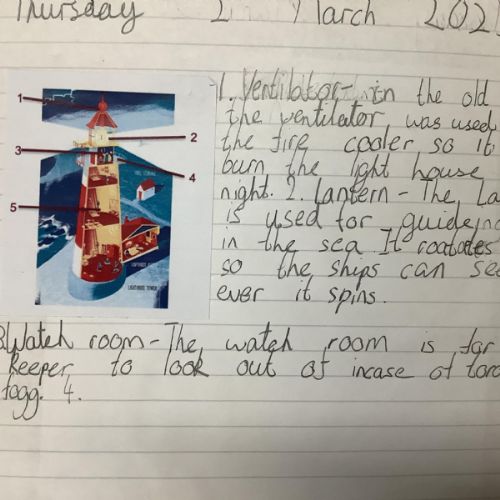 Thursday 2 March 202
1
2
3
4
5
LIGHTHOUSE TOWER
1. Ventilator - in the old
the ventilator was used
the fire cooler so it
burn the light house
night. 2. Lantern - The La
is used for guideing
in the sea It roatates
so the ships can see
ever it spins.
3. Watch room - The watch room is for
keeper to look out of incase of
fogg. 4.